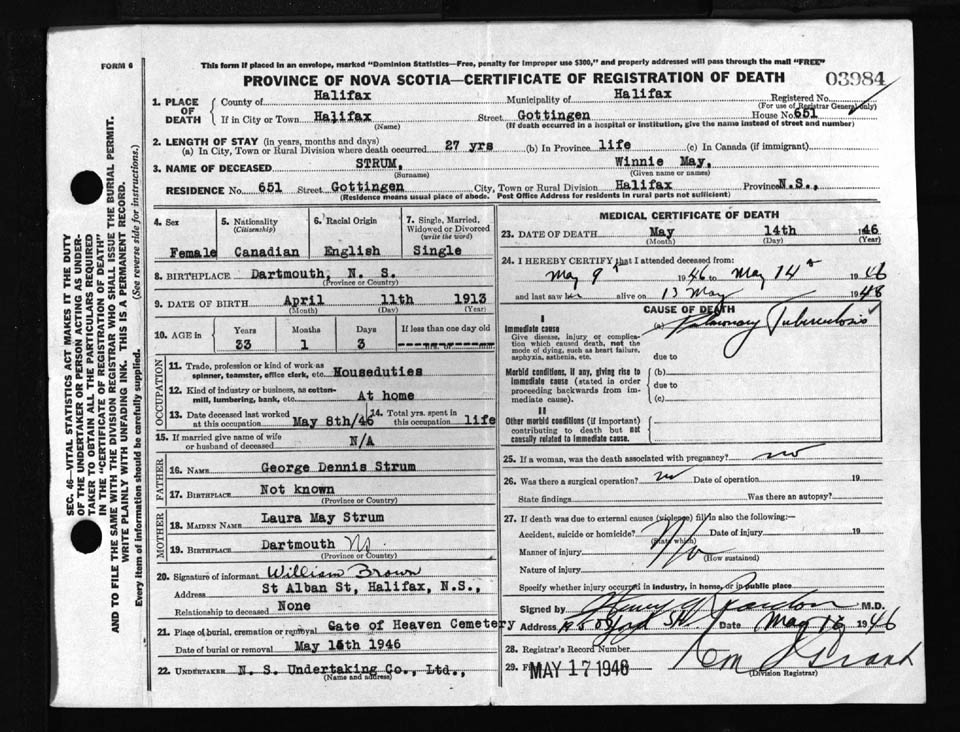 FORM 6
This form if placed in an envelope, marked "Dominion Statistics—Free, penalty for improper use $300," and properly addressed will pass through the mail "FREE"
PROVINCE OF NOVA SCOTIA—CERTIFICATE OF REGISTRATION OF DEATH
03984
1. PLACE OF DEATH
County of Halifax Municipality of Halifax Registered No.
(For use of Registrar General only)
If in City or Town Halifax Street Gottingen House No. 651
(Name) (If death occurred in a hospital or institution, give the name instead of street and number)
2. LENGTH OF STAY (in years, months and days)
(a) In City, Town or Rural Division where death occurred 27 yrs (b) In Province life (c) In Canada (if immigrant)
3. NAME OF DECEASED STRUM, Winnie May,
(Surname) (Given name or names)
RESIDENCE No. 651 Street Gottingen City, Town or Rural Division Halifax Province N.S.,
(Residence means usual place of abode. Post Office Address for residents in rural parts not sufficient)
4. Sex 5. Nationality (Citizenship) 6. Racial Origin 7. Single, Married, Widowed or Divorced (write the word)
Female Canadian English Single
8. BIRTHPLACE Dartmouth, N. S.
(Province or Country)
9. DATE OF BIRTH April 11th 1913
(Month) (Day) (Year)
10. AGE IN Years Months Days If less than one day old
33 1 3 hrs. or min.
OCCUPATION
11. Trade, profession or kind of work as spinner, teamster, office clerk, etc. Houseduties
12. Kind of industry or business, as cotton-mill, lumbering, bank, etc. At home
13. Date deceased last worked at this occupation May 8th/46 14. Total yrs. spent in this occupation life
15. If married give name of wife or husband of deceased N/A
FATHER
16. NAME George Dennis Strum
17. BIRTHPLACE Not known
(Province or Country)
MOTHER
18. MAIDEN NAME Laura May Strum
19. BIRTHPLACE Dartmouth NS
(Province or Country)
20. Signature of informant William Brown
Address St Alban St, Halifax, N.S.,
Relationship to deceased None
21. Place of burial, cremation or removal Gate of Heaven Cemetery
Date of burial or removal May 16th 1946
22. UNDERTAKER N. S. Undertaking Co., Ltd.,
(Name and address)
MEDICAL CERTIFICATE OF DEATH
23. DATE OF DEATH May 14th 1946
(Month) (Day) (Year)
24. I HEREBY CERTIFY that I attended deceased from:
May 9th 1946 to May 14th 1946
and last saw her alive on 13 May 1946
CAUSE OF DEATH
I
Immediate cause (a) Pulmonary Tuberculosis
Give disease, injury or complication which caused death, not the mode of dying, such as heart failure, asphyxia, asthenia, etc.
due to
Morbid conditions, if any, giving rise to immediate cause (stated in order proceeding backwards from immediate cause).
(b)
due to
(c)
II
Other morbid conditions (if important) contributing to death but not causally related to immediate cause.
25. If a woman, was the death associated with pregnancy? no
26. Was there a surgical operation? no Date of operation 19
State findings Was there an autopsy?
27. If death was due to external causes (violence) fill in also the following:—
Accident, suicide or homicide? Date of injury 19
(State which)
Manner of injury No
(How sustained)
Nature of injury
Specify whether injury occurred in industry, in home, or in public place
Signed by Henry Reardon M.D.
Address Date May 16 1946
28. Registrar's Record Number
29. MAY 17 1946
(Division Registrar)
SEC. 46—VITAL STATISTICS ACT MAKES IT THE DUTY
OF THE UNDERTAKER OR PERSON ACTING AS UNDER-
TAKER TO OBTAIN ALL THE PARTICULARS REQUIRED
IN THE "CERTIFICATE OF REGISTRATION OF DEATH"
AND TO FILE THE SAME WITH THE DIVISION REGISTRAR WHO SHALL ISSUE THE BURIAL PERMIT.
WRITE PLAINLY WITH UNFADING INK. THIS IS A PERMANENT RECORD.
Every item of information should be carefully supplied. (See reverse side for instructions.)